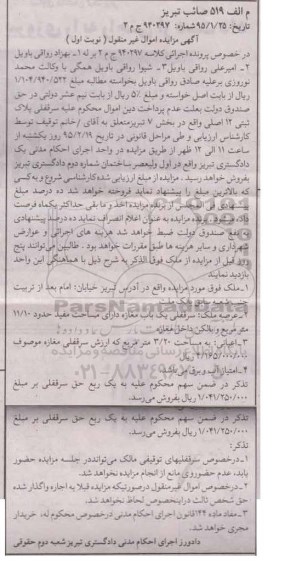 م الف ۵۱۹ صائب تبریز
تاریخ: ۹۵/۱/۲۵ شماره: ۹۳۰۲۹۷ ج م ۲
آگهی مزایده اموال غیر منقول ( نوبت اول )
در خصوص پرونده اجرائی کلاسه ۹۴۰۲۹۷ ج م ۲ بر له ۱ـ بهزاد رواقی باویل
۲ـ امیرعلی رواقی باویل ۳ـ شیوا رواقی باویل همگی با وکالت محمد
نوروزی برعلیه صادق باویل بخواسته مطالبه مبلغ
ریال از بابت اصل خواسته و مبلغ ریال از بابت نیم عشر دولتی در حق
صندوق دولت بعلت عدم پرداخت دین اموال محکوم علیه سرقفلی پلاک
ثبتی ۱۲ اصلی واقع در بخش ۷ تبریز متعلق به آقای /خانم توقیف توسط
کارشناس ارزیابی و طی مراحل قانونی در تاریخ ۹۵/۲/۱۹ روز یکشنبه از
ساعت ۱۱ الی ۱۲ ظهر از طریق مزایده در واحد اجرای احکام مدنی یک
دادگستری تبریز واقع در اول ولیعصر ساختمان شماره دوم دادگستری تبریز
بفروش خواهد رسید . مزایده از مبلغ ارزیابی شده کارشناسی شروع و به کسی
که بالاترین مبلغ را پیشنهاد نماید فروخته خواهد شد ده درصد مبلغ
مزایده اخذ و ما بقی حداکثر یکماه فرصت
داده مزایده به عنوان اعلام انصراف نماید ده درصد پیشنهادی
صندوق دولت ضبط خواهد شد هزینه های اجرائی و عوارض
شهرداری و سایر هزینه ها طبق مقررات خواهد بود . طالبین می توانند پنج
روز قبل از مزایده از ملک فوق الذکر به شرح ذیل با هماهنگی این واحد
بازدید نمایند
۱ـ ملک فوق مورد مزایده واقع در آدرس تبریز خیابان: امام بعد از تربیت
بانک ملت
۲ـ عرصه ملک: سرقفلی یک باب مغازه دارای مساحت مفید حدود ۱۱/۱۰
متر مربع و بالکن داخل مغازه
۳ـ اعیانی: به مساحت ۳/۲۰ متر مربع که ارزش سرقفلی مغازه موصوف
۴/۱۶۵/۰۰۰/۰۰۰ ریال
۴ـ امتیاز آب و برق می باشد
تذکر در ضمن سهم محکوم علیه به یک ربع حق سرقفلی بر مبلغ
۱/۰۴۱/۲۵۰/۰۰۰ ریال بفروش می رسد.
تذکر در ضمن سهم محکوم علیه به یک ربع حق سرقفلی بر مبلغ
۱/۰۴۱/۲۵۰/۰۰۰ ریال بفروش می رسد.
تذکر:
۱ـ درخصوص سرقفلیهای توقیفی مالک می تواند در جلسه مزایده حضور
یابد، عدم حضور وی مانع از انجام مزایده نخواهد شد.
۲ـ درخصوص اموال غیر منقول درصورتیکه مزایده قبلا به اجاره واگذار شده
حق شخص ثالث دراینخصوص لحاظ نخواهد شد.
۳ـ مفاد ماده ۱۴۴ قانون اجرای احکام مدنی درخصوص محکوم له، خریدار
مجری خواهد شد.
دادورز اجرای احکام مدنی دادگستری تبریز شعبه دوم حقوقی
ParsNamadData